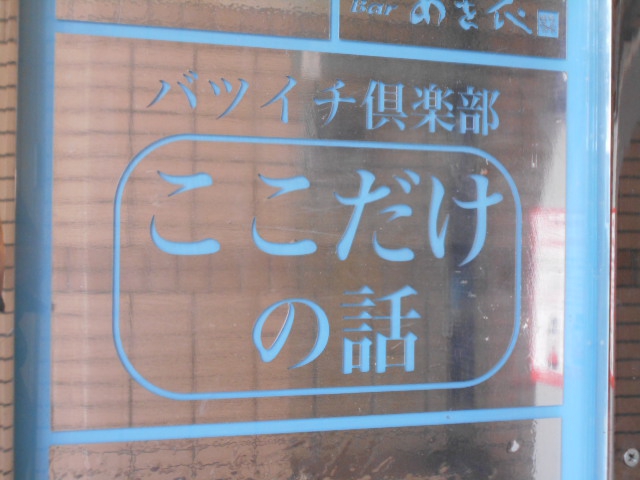 Bar あき衣
バツイチ倶楽部
ここだけ
の話